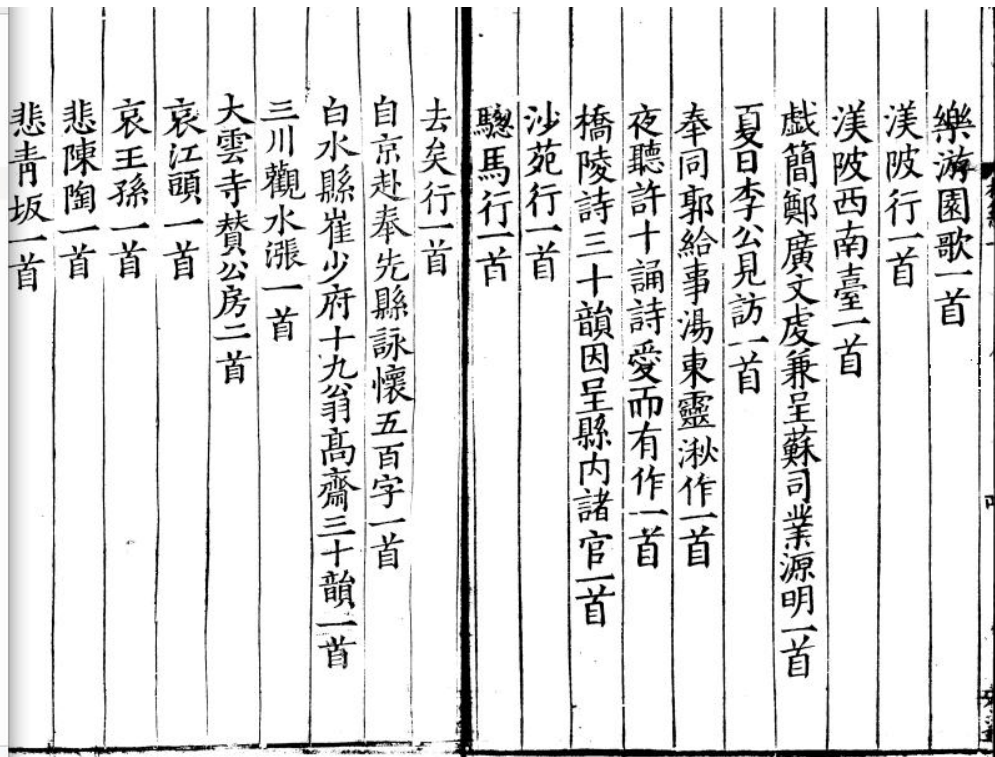 樂游園歌一首
渼陂行一首
渼陂西南臺一首
戲簡鄭廣文虔兼呈蘇司業源明一首
夏日李公見訪一首
奉同郭給事湯東靈湫作一首
夜聽許十誦詩愛而有作一首
橋陵詩三十韻因呈縣内諸官一首
沙苑行一首
驄馬行一首
去矣行一首
自京赴奉先縣詠懷五百字一首
白水縣崔少府十九翁髙齋三十韻一首
三川觀水漲一首
大雲寺賛公房二首
哀江頭一首
哀王孫一首
悲陳陶一首
悲青坂一首